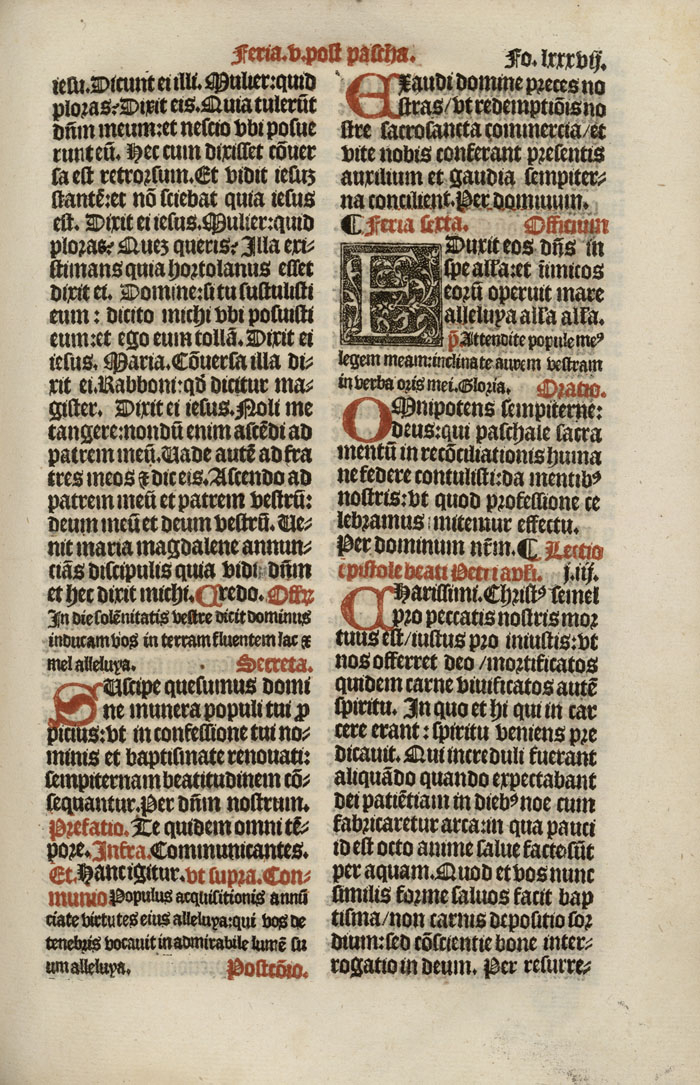 Feria.v.post pascha.
Fo. lxxxvij.
iesu. Dicunt ei illi. Mulier: quid
ploras? Dixit eis. Quia tulerūt
dn̄m meum: et nescio vbi posue
runt eū. Hec cum dixisset cōuer
sa est retrorsum. Et vidit iesuz
stantē: et nō sciebat quia iesus
est. Dixit ei iesus. Mulier: quid
ploras? Quez queris? Illa exi⸗
stimans quia hortolanus esset
dixit ei. Domine: si tu sustulisti
eum: dicito michi vbi posuisti
eum: et ego eum tollā. Dixit ei
iesus. Maria. Cōuersa illa di⸗
xit ei. Rabboni: qď dicitur ma⸗
gister. Dixit ei iesus. Noli me
tangere: nondū enim ascēdi ad
patrem meū. Vade autē ad fra
tres meos ⁊ dic eis. Ascendo ad
patrem meū et patrem vestrū:
deum meū et deum vestrū. Ve⸗
nit maria magdalene annun⸗
ciās discipulis quia vidi dn̄m
et hec dixit michi. Credo. Offer
In die solēnitatis vestre dicit dominus
inducam vos in terram fluentem lac ⁊
mel alleluya. Secreta.
SUscipe quesumus domi
ne munera populi tui ꝓ
picius: vt in confessione tui no⸗
minis et baptismate renouati:
sempiternam beatitudinem cō⸗
sequantur. Per dn̄m nostrum.
Prefatio. Te quidem omni tē⸗
pore. Infra. Communicantes.
Et. Hanc igitur. vt supra. Con⸗
munio Populus acquisitionis annū
ciate virtutes eius alleluya: qui vos de
tenebris vocauit in admirabile lumē su
um alleluya. Postcōio.
EXaudi domine preces no
stras/vt redemptiōis no
stre sacrosancta commercia/et
vite nobis conferant presentis
auxilium et gaudia sempiter⸗
na concilient. Per dominum.
¶ Feria sexta. Officium
EDuxit eos dn̄s in
spe alľa: et īimicos
eorū operuit mare
alleluya alľa alľa.
p̄. Attendite popule meꝰ
legem meam: inclinate aurem vestram
in verba oris mei. Gloria. Oratio.
OMnipotens sempiterne:
deus: qui paschale sacra
mentū in recōciliationis huma
ne federe contulisti: da mentibꝰ
nostris: vt quod professione ce
lebramus imitemur effectu.
Per dominum nr̄m. ¶ Lectio
epistole beati Petri apľi. j. iij.
CHarissimi. Christꝰ semel
pro peccatis nostris mor
tuus est/iustus pro iniustis: vt
nos offerret deo/mortificatos
quidem carne viuificatos autē
spiritu. In quo et hi qui in car
cere erant: spiritu veniens pre
dicauit. Qui increduli fuerant
aliquādo quando expectabant
dei patiētiam in diebꝰ noe cum
fabricaretur arca: in qua pauci
id est octo anime salue facte sūt
per aquam. Quod et vos nunc
similis forme saluos facit bap
tisma/non carnis depositio sor
dium: sed cōscientie bone inter⸗
rogatio in deum. Per resurre⸗